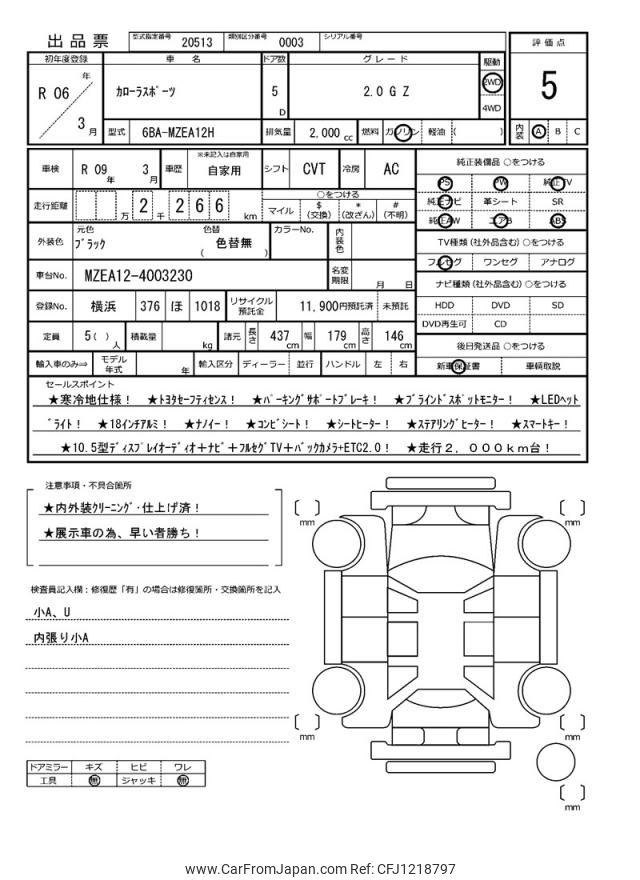 出品票 型式指定番号 20513 類別区分番号 0003 シリアル番号
評価点
5
内装 A B C
初年度登録 車名 ドア数 グレード 駆動
R 06 年 3 月 カローラスポーツ 5 D 2.0 G Z 2WD 4WD
型式 6BA-MZEA12H 排気量 2,000 cc 燃料 ガソリン 軽油 ( )
車検 R 09 年 3 月 車歴 ※未記入は自家用 自家用 シフト CVT 冷房 AC
走行距離 万 2 千 2 6 6 km ○をつける
マイル $(交換) *(改ざん) #(不明)
外装色 元色 ブラック 色替 ( 色替無 ) カラーNo. 内装色
車台No. MZEA12-4003230 名変期限 月 日
登録No. 横浜 376 ほ 1018 リサイクル預託金 11,900円預託済 未預託
定員 5( ) 人 積載量 kg 諸元 長さ 437 cm 幅 179 cm 高さ 146 cm
輸入車のみ⇒ モデル年式 年 輸入区分 ディーラー 並行 ハンドル 左 右
純正装備品 ○をつける
PS PW 純正TV
純正ナビ 革シート SR
純正AW エアB ABS
TV種類(社外品含む)○をつける
フルセグ ワンセグ アナログ
ナビ種類(社外品含む)○をつける
HDD DVD SD
DVD再生可 CD
後日発送品 ○をつける
新車保証書 車輌取説
セールスポイント
★寒冷地仕様！ ★トヨタセーフティセンス！ ★パーキングサポートブレーキ！ ★ブラインドスポットモニター！ ★LEDヘット
゙ライト！ ★18インチアルミ！ ★ナノイー！ ★コンビシート！ ★シートヒーター！ ★ステアリングヒーター！ ★スマートキー！
★10.5型ディスプレイオーディオ＋ナビ＋フルセグTV＋バックカメラ+ETC2.0！ ★走行２，０００ｋｍ台！
注意事項・不具合箇所
★内外装クリーニング・仕上げ済！
★展示車の為、早い者勝ち！
検査員記入欄：修復歴「有」の場合は修復箇所・交換箇所を記入
小A、U
内張り小A
ドアミラー キズ ヒビ ワレ
工具 無 ジャッキ 無
mm
mm
mm
mm
mm
www.CarFromJapan.com Ref: CFJ1218797